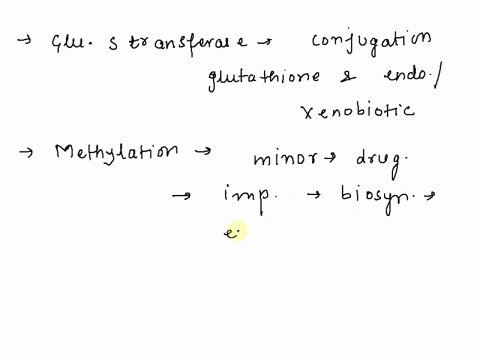 → Glu. S transferase → conjugation
glutathione & endo./
xenobiotic
→ Methylation → minor → drug.
→ imp. → biosyn. →
e.